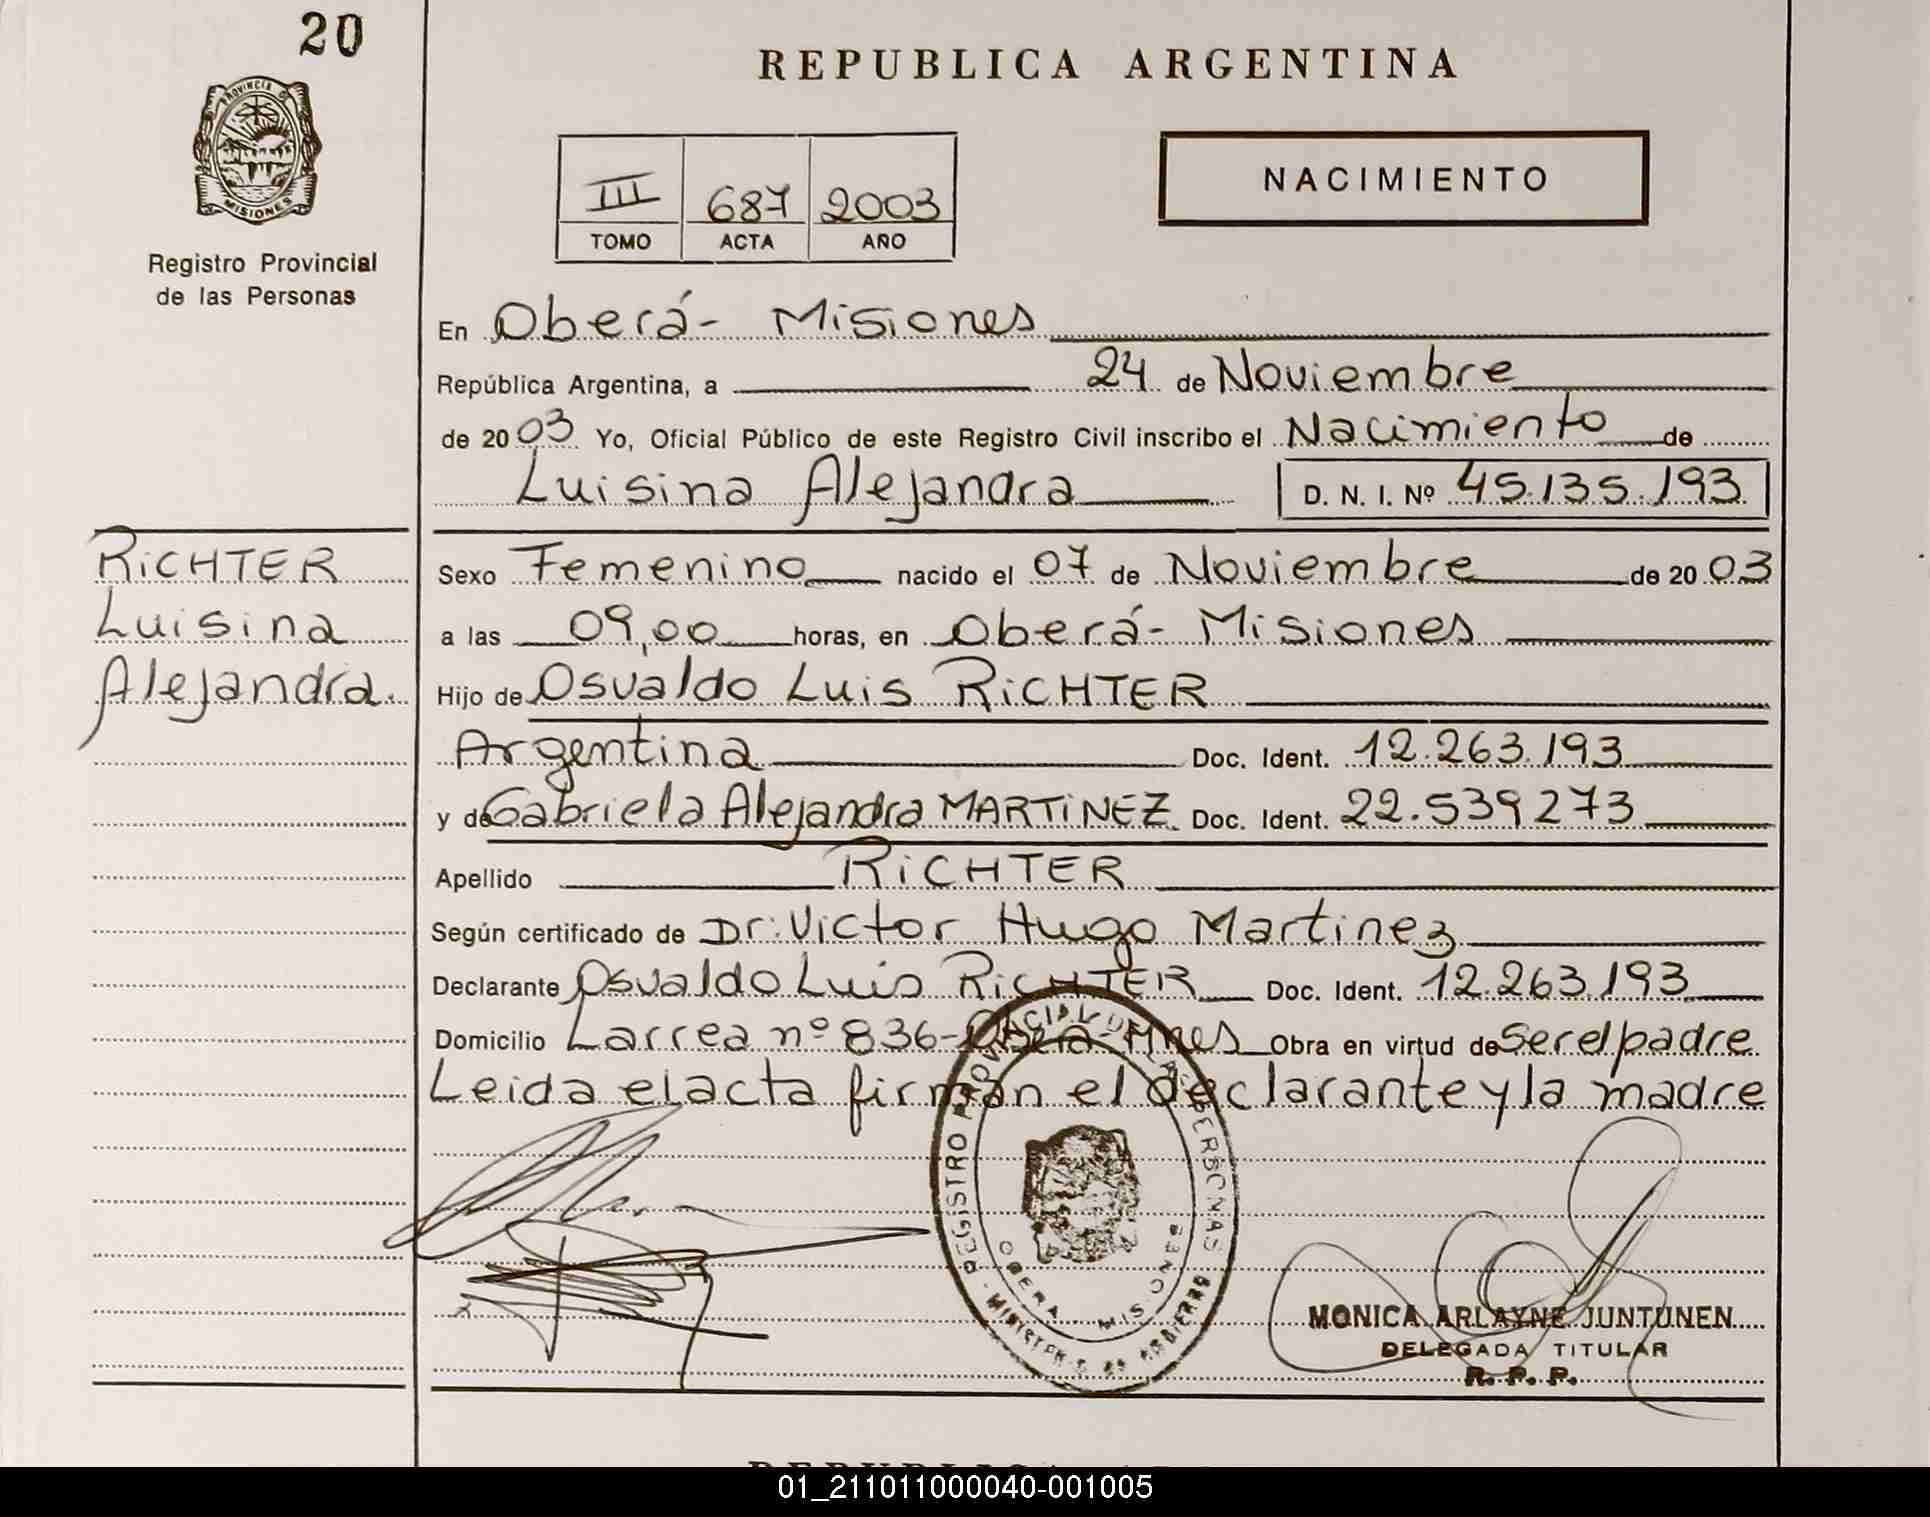 20
REPUBLICA ARGENTINA
PROVINCIA DE
MISIONES
Registro Provincial
de las Personas
III 687 2003
TOMO ACTA AÑO
NACIMIENTO
En Oberá- Misiones
República Argentina, a 24 de Noviembre
de 2003 Yo, Oficial Público de este Registro Civil inscribo el Nacimiento de
Luisina Alejandra D. N. I. Nº 45.135.193
RiCHTER
Luisina
Alejandra.
Sexo Femenino nacido el 07 de Noviembre de 2003
a las 09,00 horas, en Oberá- Misiones
Hijo de Osvaldo Luis RiCHTER
Argentina Doc. Ident. 12.263.193
y de Gabriela Alejandra MARTiNEZ. Doc. Ident. 22.539273
Apellido RiCHTER
Según certificado de Dr. Victor Hugo Martinez
Declarante Osvaldo Luis RiCHTER Doc. Ident. 12.263.193
Domicilio Larrea nº 836-Oberá-Mnes Obra en virtud de Ser el padre
Leida el acta firman el declarante y la madre
REGISTRO PROVINCIAL DE LAS PERSONAS
OBERA - MISIONES
MONICA ARLAYNE JUNTUNEN
DELEGADA TITULAR
R. P. P.
01_211011000040-001005